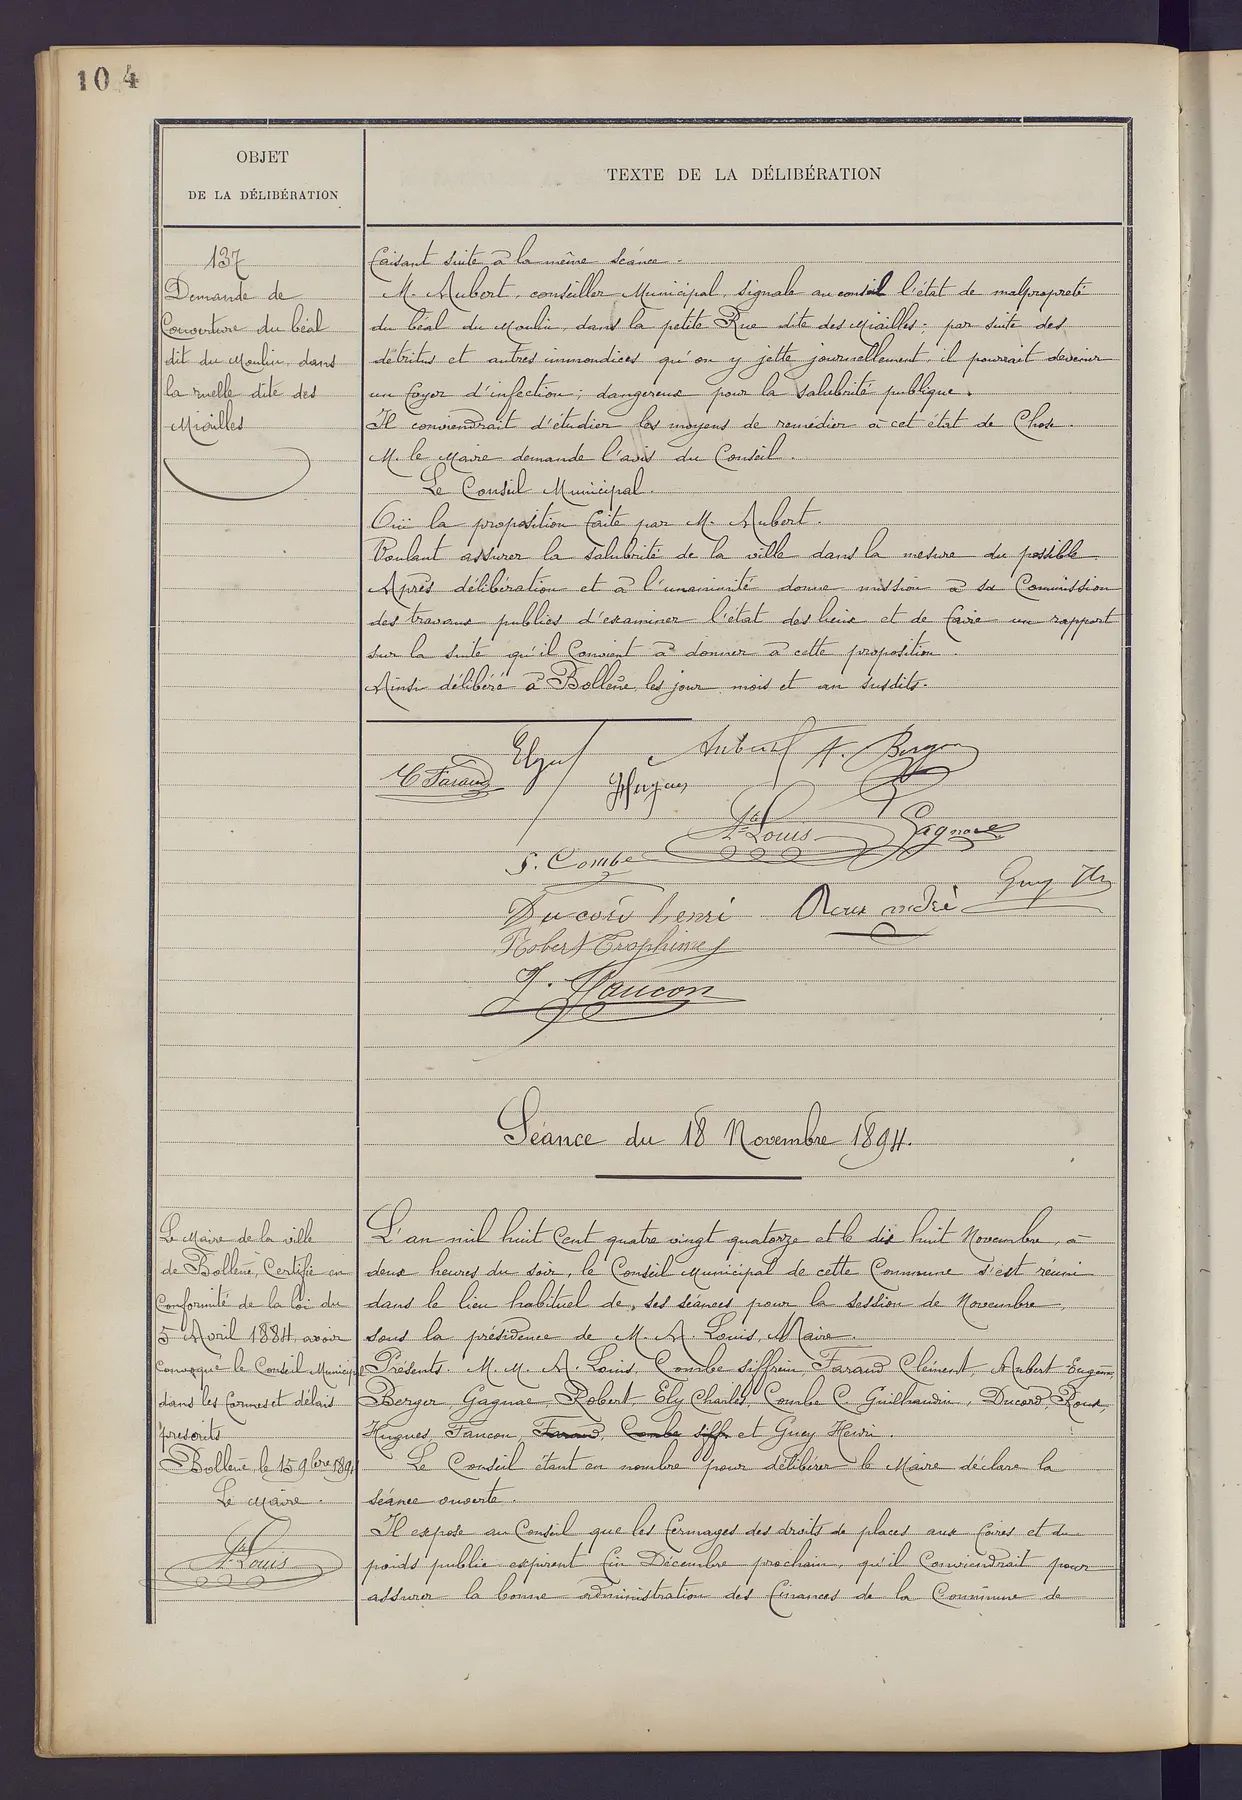 104
OBJET
DE LA DÉLIBÉRATION
TEXTE DE LA DÉLIBÉRATION
137
Demande de
Couverture du béal
dit du Moulin, dans
la ruelle dite des
Miailles
Faisant suite à la même séance.
M. Aubert, conseiller Municipal, signale au conseil l'état de malpropreté
du béal du Moulin, dans la petite Rue dite des Miailles; par suite des
détritus et autres immondices qu'on y jette journellement, il pourrait devenir
un foyer d'infection; dangereux pour la salubrité publique.
Il conviendrait d'étudier les moyens de remédier à cet état de Chose.
M. le Maire demande l'avis du Conseil.
Le Conseil Municipal.
Ouï la proposition faite par M. Aubert.
Voulant assurer la salubrité de la ville dans la mesure du possible.
Après délibération et à l'unanimité donne mission à sa Commission
des travaux publics d'examiner l'état des lieux et de faire un rapport
sur la suite qu'il Convient à donner à cette proposition.
Ainsi délibéré à Bollène, les jour, mois et an susdits.
Aubert A. Berger
C Faraud
Hugues
Louis
Gagnare
S. Combe
Guey Hri
Ducord henri
Roux andré
Robert Trophimes
J. Faucon
Séance du 18 Novembre 1894.
Le Maire de la ville
de Bollène, Certifie en
Conformité de la loi du
5 Avril 1884, avoir
Convoqué le Conseil Municipal
dans les formes et délais
prescrits
Bollène, le 15 9bre 1894
Le Maire.
Louis
L'an mil huit Cent quatre vingt quatorze et le dix huit Novembre, à
deux heures du soir, le Conseil Municipal de cette Commune s'est réuni
dans le lieu habituel de ses séances pour la session de Novembre,
sous la présidence de M. A. Louis, Maire.
Présents. M. M. A. Louis, Combe Siffrein, Faraud Clément, Aubert Eugène,
Berger, Gagnac, Robert, Ely Charles, Combe C. Guilhaudin, Ducord, Roux,
Hugues, Faucon, Faraud, Combe Siff. et Guey Henri.
Le Conseil étant en nombre pour délibérer le Maire déclare la
séance ouverte.
Il expose au Conseil que les fermages des droits de places aux foires et du
poids public expirent fin Décembre prochain, qu'il Conviendrait pour
assurer la bonne administration des finances de la Commune de